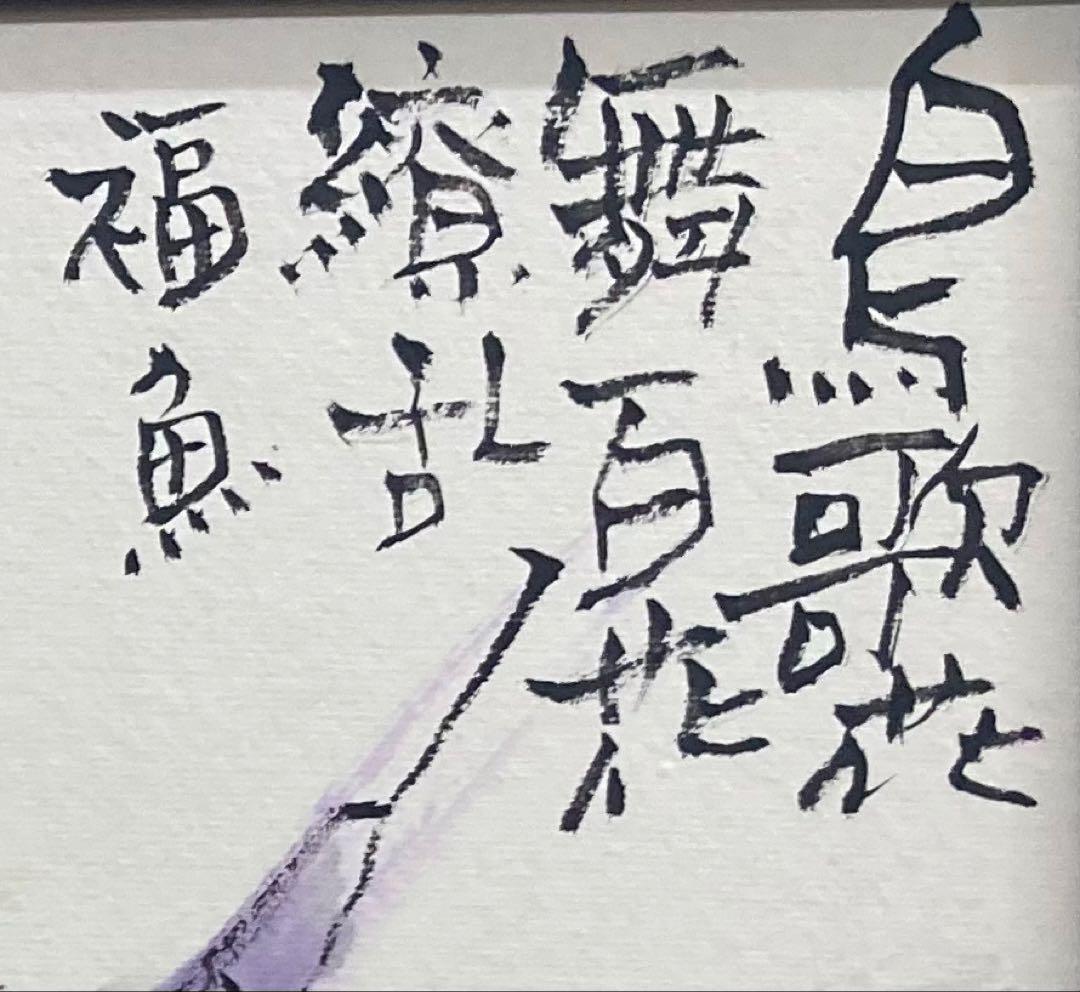 鳥歌花
舞百花
繚乱
福魚